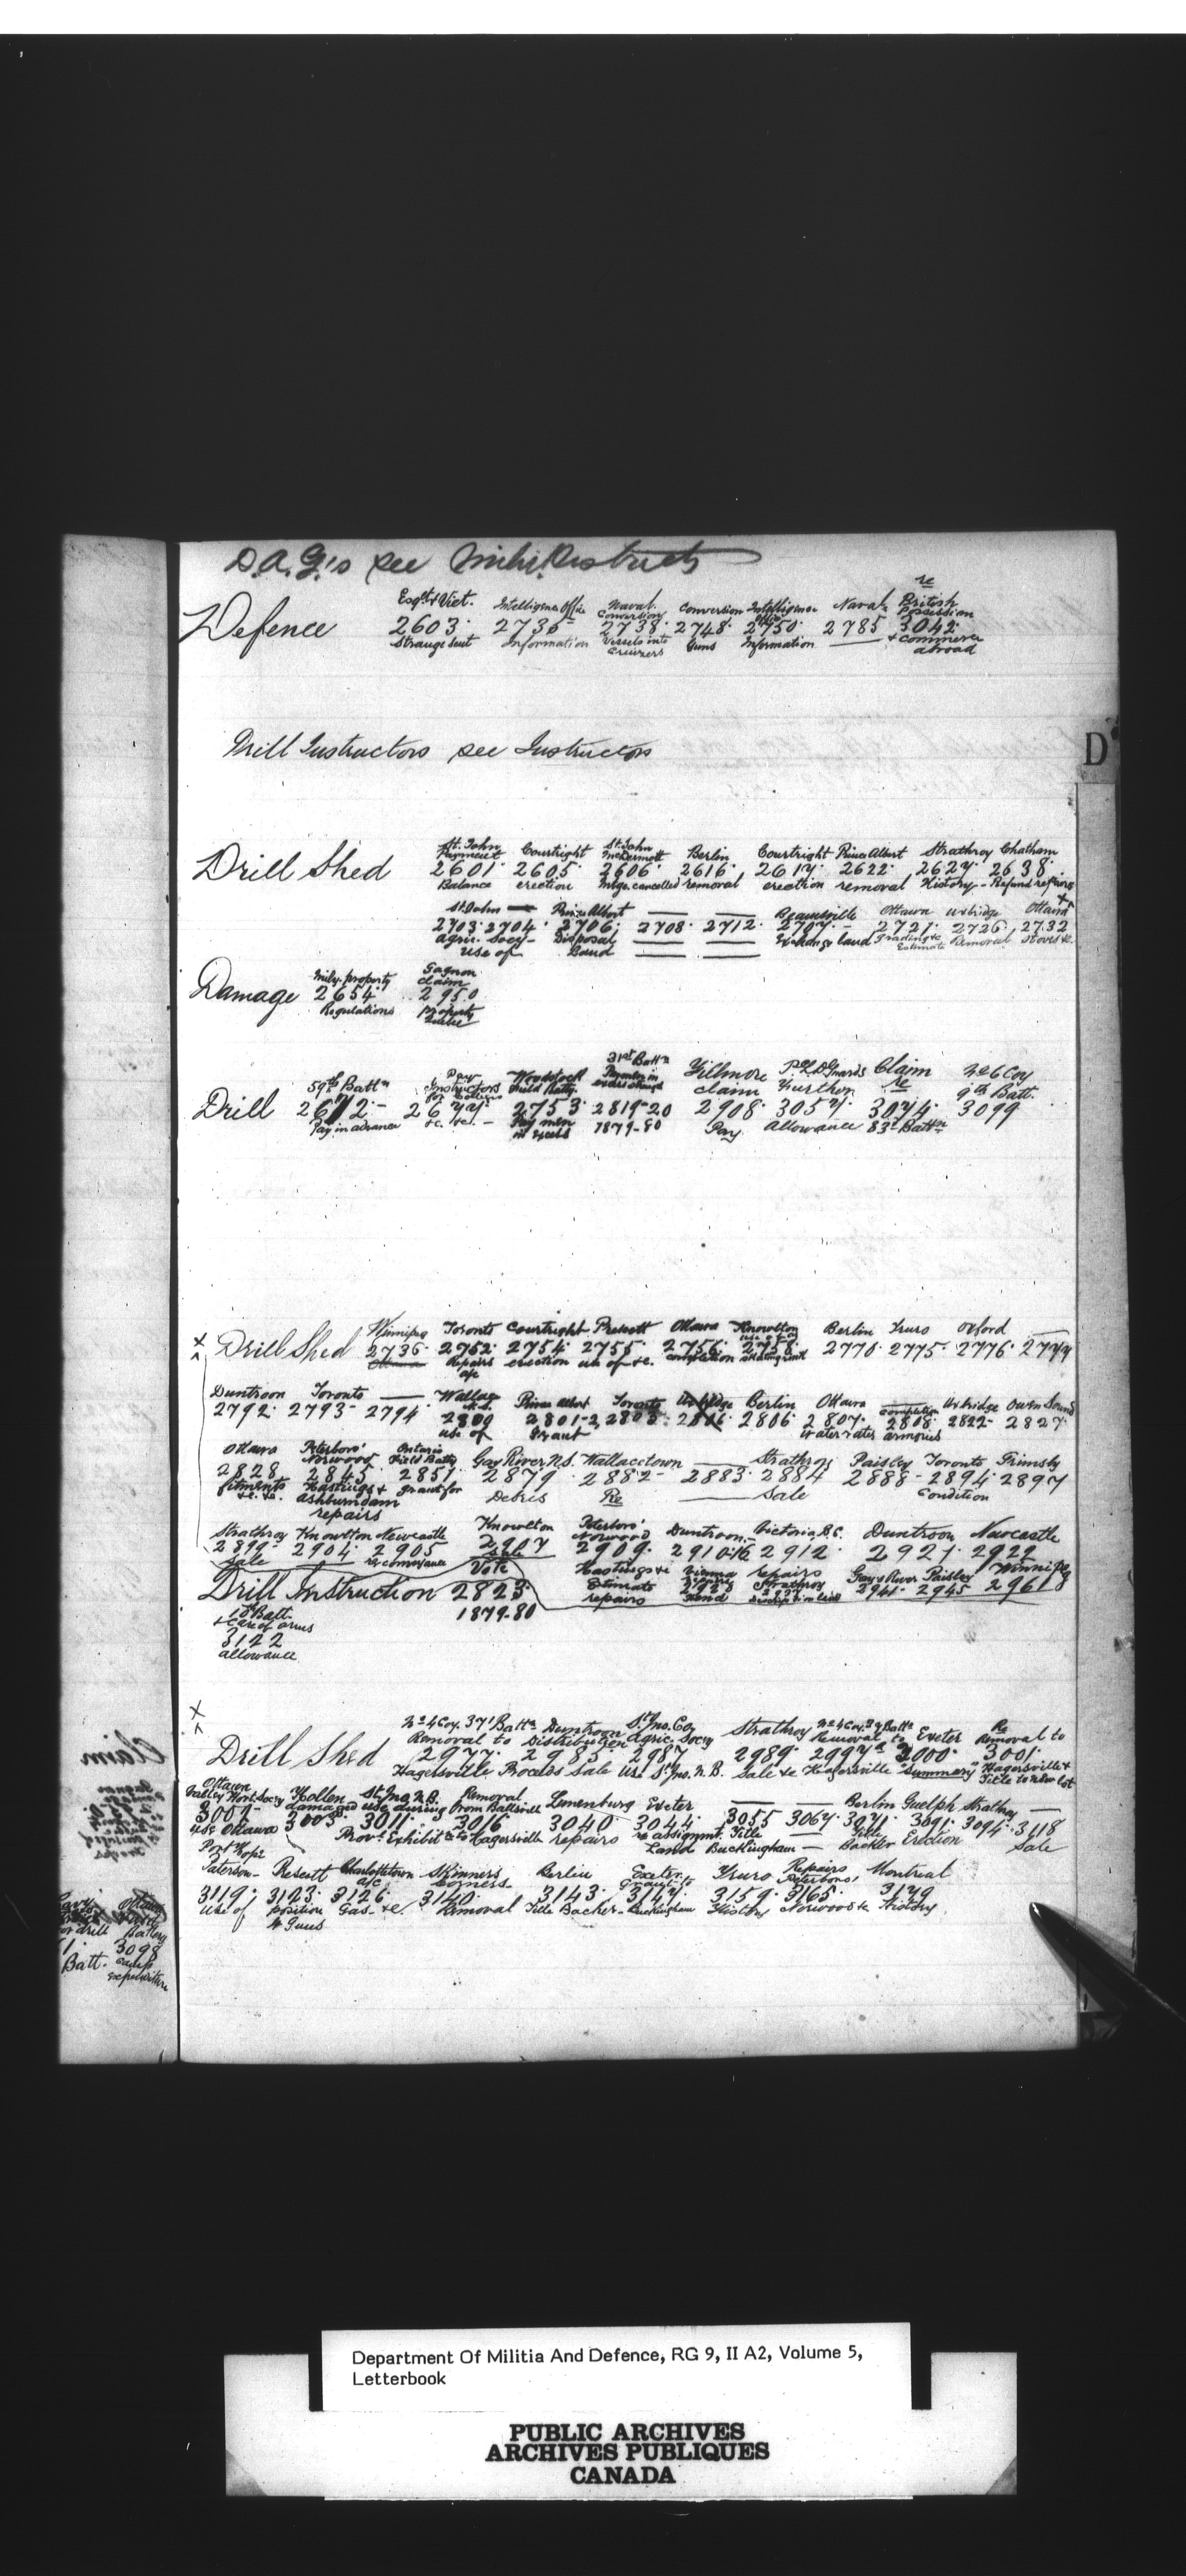 D.A.G.'s see Mily. Districts
re
Esqlt & Vict. Intelligence Office Naval Conversion Intelligence Naval British
Conversion Office Possession
Defence 2603. 2736 2738. 2748. 2750. 2785 3042.
Strange Sent Information Vessels into Guns Information — & commerce
Cruizers abroad
Drill Instructors see Instructors
D
St. John Courtright St. John Berlin Courtright Prince Albert Strathroy Chatham
Payment McDermott
Drill Shed 2601. 2605. 2606. 2616. 2617. 2622. 2627. 2638.
Balance erection Mtge. cancelled removal erection removal History — Refund repairs
St. John — Prince Albert — — Beamsville Ottawa Uxbridge Ottawa
2703. 2704. 2706. 2708. 2712. 2707. 2721. 2726. 2732
Agric. Socy — Disposal — — Exchange land Grading &c Removal Stoves &c.
use of Land — — Estimate
Mily. property Gagnon
claim
Damage 2654 2950
Regulations Property
31st Battn
59th Battn Pay Woodstock Payments in Fillmore P.L.D. Guards Claim No 6 Coy
Instructors Field Batty claim Further re 9th Batt.
Drill 2612. 2677. 2753. 2819-20 2908. 3057. 3074. 3099
Pay in advance &c. &c. — Pay men 1879-80 Pay Allowance 83d Battn
in excess
Winnipeg Toronto Courtright Prescott Ottawa Knowlton Berlin Truro Oxford —
Drill Shed 2736. 2752. 2754. 2755. 2756. 2758. 2770. 2775. 2776. 2777
Repairs erection use of &c. completion
a/c
Duntroon Toronto — Wallace Prince Albert Toronto Uxbridge Berlin Ottawa completion Uxbridge Owen Sound
N.S.
2792. 2793- 2794. 2800 2801-2 2803. 2806. 2806. 2807. 2808. 2822- 2827.
use of Grant water rates armouries
Ottawa Peterboro' Ontario Gay River N.S. Wallacetown — Strathroy Paisley Toronto Grimsby
Norwood Field Batty
2828 2845. 2851. 2879 2882- 2883. 2884 2888- 2894. 2897
fitments Hastings & grant for Debris Re — Sale Condition
&c. &c. Ashburnham
repairs
Strathroy Knowlton Newcastle Knowlton Peterboro' Duntroon Victoria B.C. Duntroon Newcastle
Norwood
2899- 2904. 2905 2907 2909. 2910-16 2912. 2921. 2922
Sale — re conveyance Sale
Vote Hastings & Vienna repairs Gays River Paisley Winnipeg
Drill Instruction 2823. Estimate Strathroy 2941. 2945 2961
1879-80 repairs
18 Batt.
& care of arms
3122
allowance
No 4 Coy. 37th Battn Duntroon St. Jno. Co. Strathroy No 4 Coy. 37 Battn Exeter Re Removal to
Removal to Distribution Agric. Socy Removal to
Drill Shed 2977. 2985. 2987 2989. 2997 3000. 3001.
Hagersville Proceeds Sale Use St. Jno. N.B. Sale &c Hagersville "Summary" Hagersville &
Title to new lot
Ottawa
Hollen St. Jno. N.B. Removal Lunenburg Exeter — — Berlin Guelph Strathroy —
damaged use during from Ballsville
3002- 3003 3011. 3016. 3040. 3044. 3055 3067. 3071. 3091. 3094. 3118
use Ottawa Prov. Exhibit. to Hagersville repairs re assignmt. Title — Title Erection Sale
Port Hope Land Buckingham — Backer
Paterson — Charlottetown Skinners Berlin Exeter Truro Repairs Montreal
a/c Corners Peterboro'
3119. 3123. 3126. 3140. 3143. 3147. 3159. 3165. 3179
use of position Gas &c Removal Title Backer — Buckingham History Norwood &c History
4 Guns
3098
Batt. camp
expenditure
Department Of Militia And Defence, RG 9, II A2, Volume 5,
Letterbook
PUBLIC ARCHIVES
ARCHIVES PUBLIQUES
CANADA